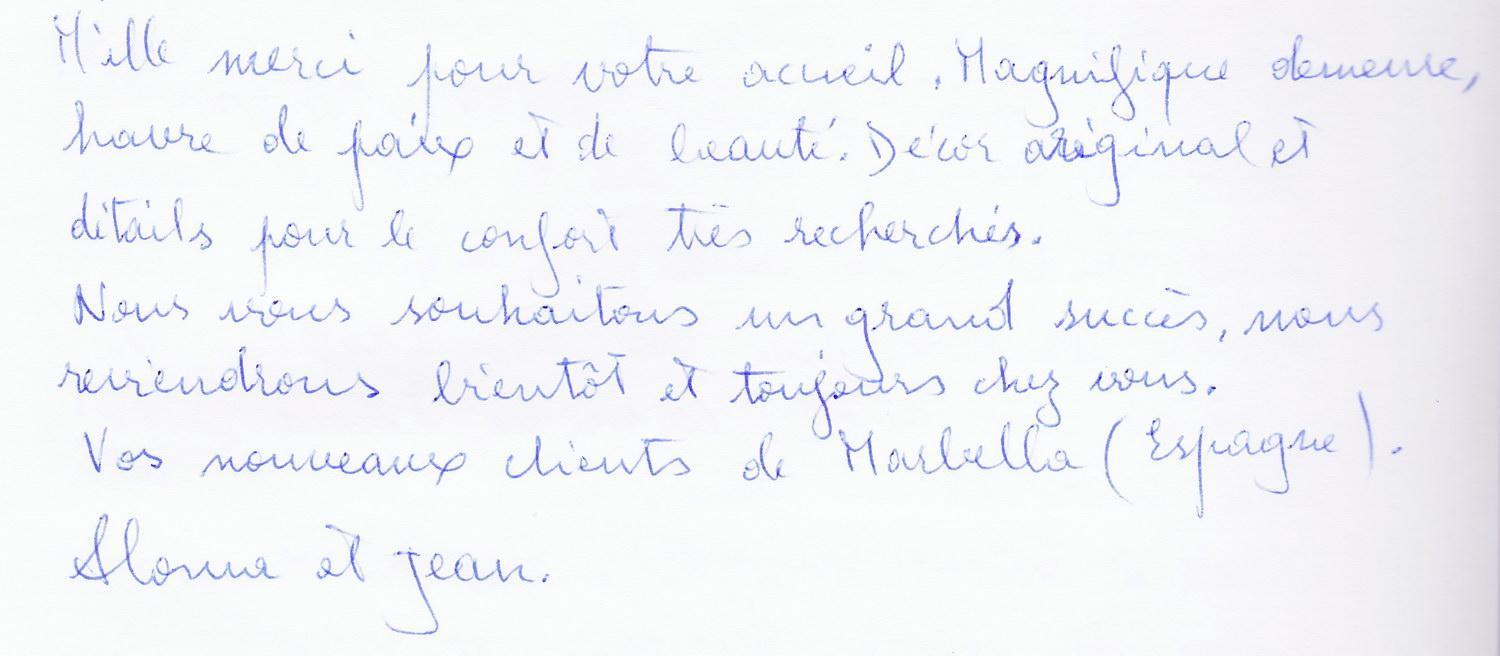 Mille merci pour votre acueil. Magnifique demeure,
havre de paix et de beauté. Décor original et
détails pour le confort très recherchés.
Nous vous souhaitons un grand succès, nous
reviendrons bientôt et toujours chez vous.
Vos nouveaux clients de Marbella (Espagne).
et Jean.